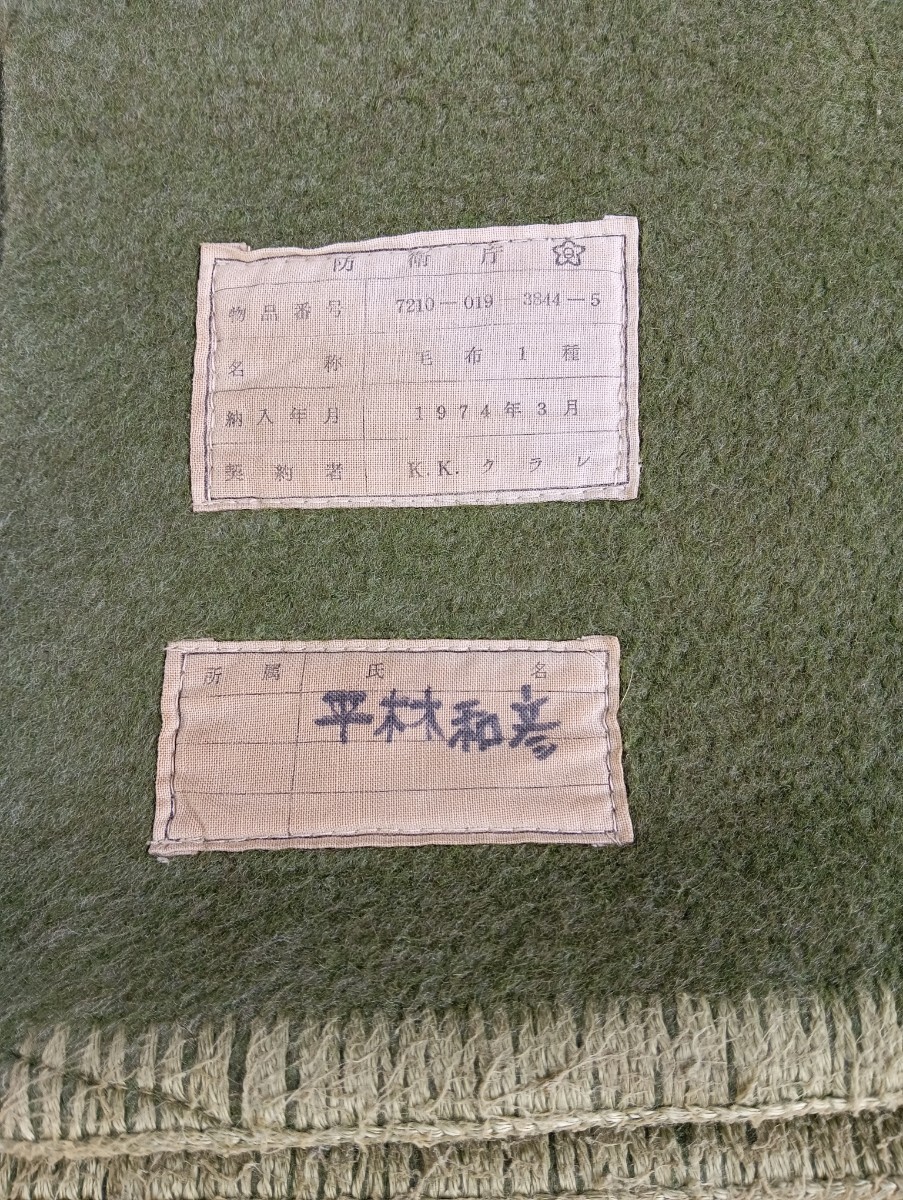 防衛庁
物品番号 7210-019-3844-5
名称 毛布1種
納入年月 1974年3月
契約者 K.K.クラレ
所属 氏名
平林和彦